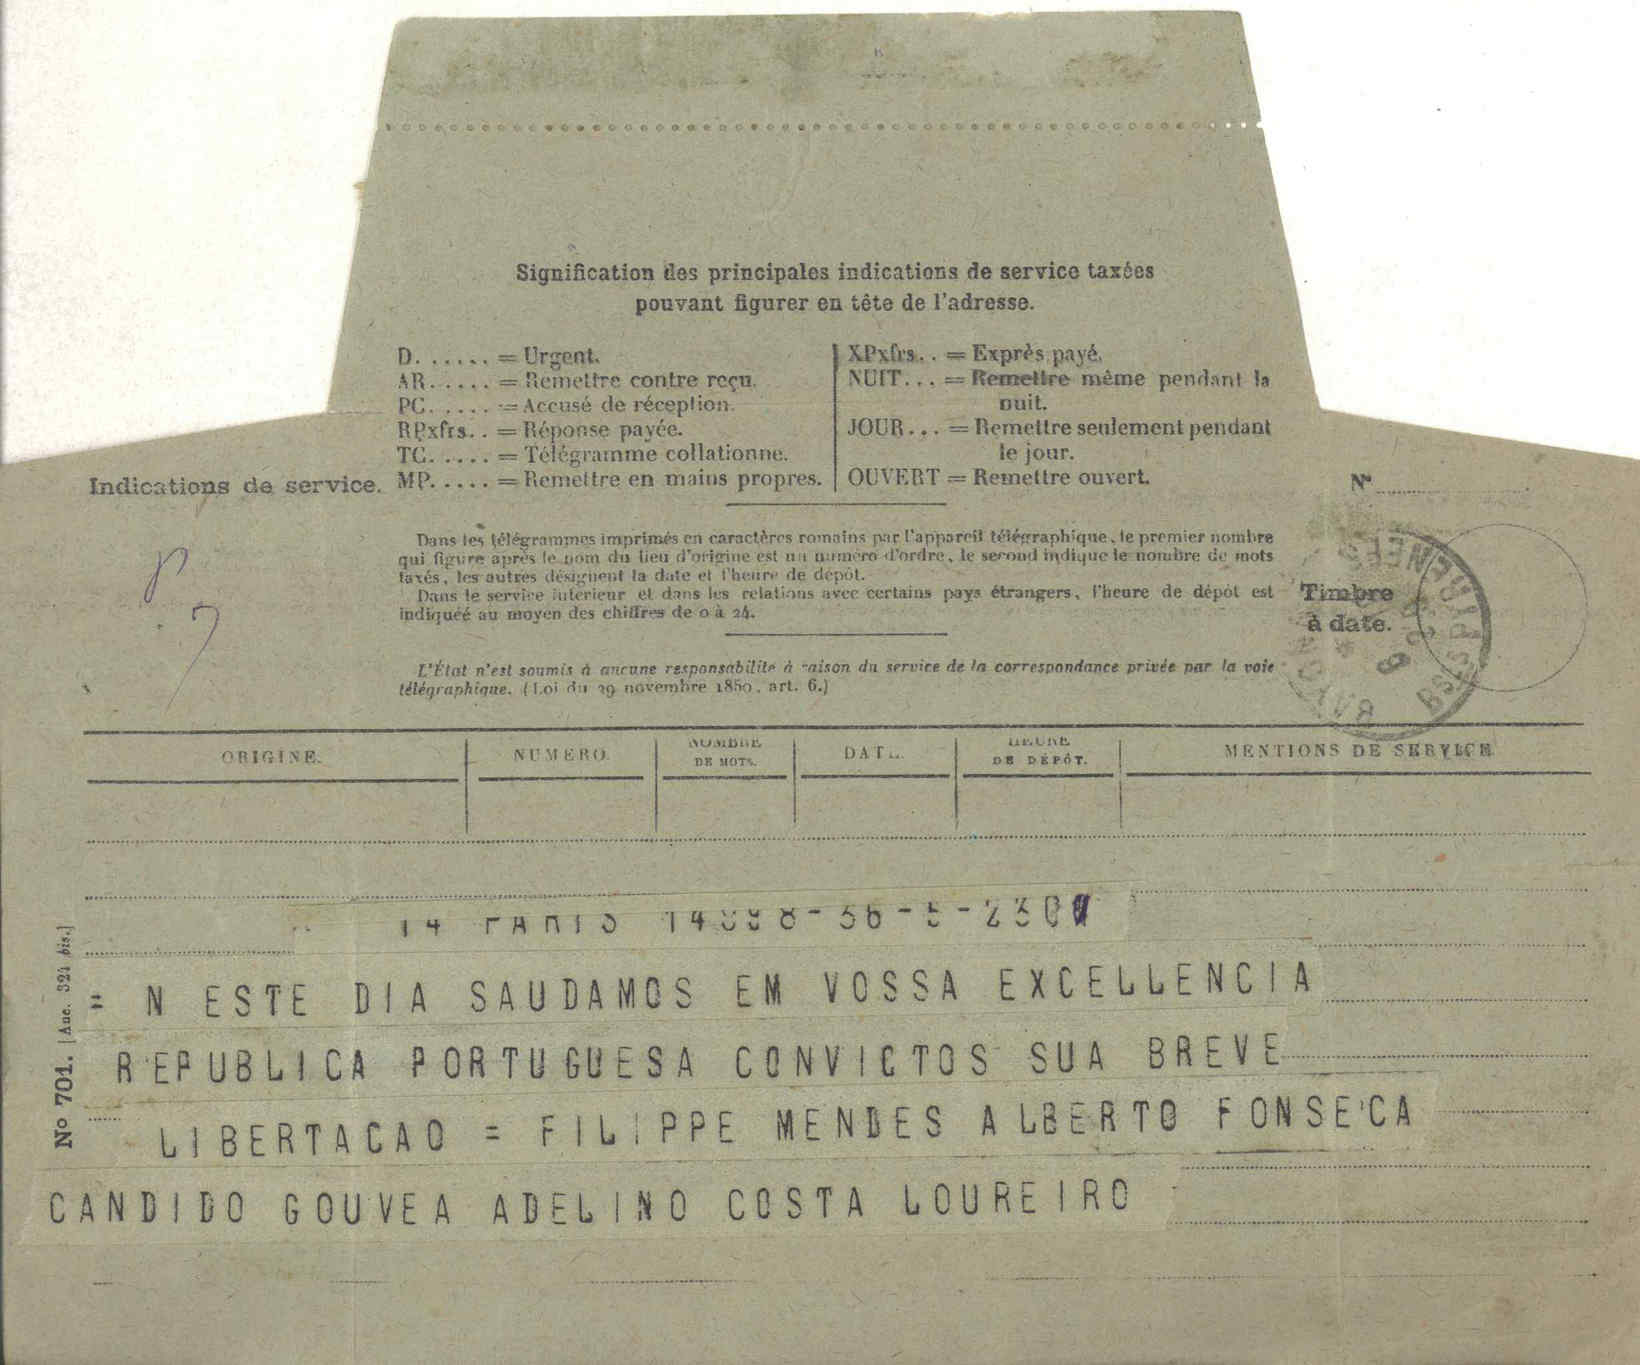 Signification des principales indications de service taxées
pouvant figurer en tête de l'adresse.
D. . . . . . = Urgent.
AR. . . . . = Remettre contre reçu.
PC. . . . . = Accusé de réception.
RPxfrs. . = Réponse payée.
TC. . . . . = Télégramme collationné.
MP. . . . . = Remettre en mains propres.
XPxfrs. . = Exprès payé.
NUIT. . . = Remettre même pendant la
nuit.
JOUR. . . = Remettre seulement pendant
le jour.
OUVERT = Remettre ouvert.
Indications de service.
N°
Dans les télégrammes imprimés en caractères romains par l'appareil télégraphique, le premier nombre
qui figure après le nom du lieu d'origine est un numéro d'ordre, le second indique le nombre de mots
taxés, les autres désignent la date et l'heure de dépôt.
Dans le service intérieur et dans les relations avec certains pays étrangers, l'heure de dépôt est
indiquée au moyen des chiffres de 0 à 24.
Timbre
à date.
L'État n'est soumis à aucune responsabilité à raison du service de la correspondance privée par la voie
télégraphique. (Loi du 29 novembre 1850, art. 6.)
ORIGINE.
NUMÉRO.
NOMBRE
DE MOTS.
DATE.
HEURE
DE DÉPÔT.
MENTIONS DE SERVICE
14 PARIS
= N ESTE DIA SAUDAMOS EM VOSSA EXCELLENCIA
REPUBLICA PORTUGUESA CONVICTOS SUA BREVE
LIBERTACAO = FILIPPE MENDES ALBERTO FONSECA
CANDIDO GOUVEA ADELINO COSTA LOUREIRO
N° 701. [Anc. 324 bis.]